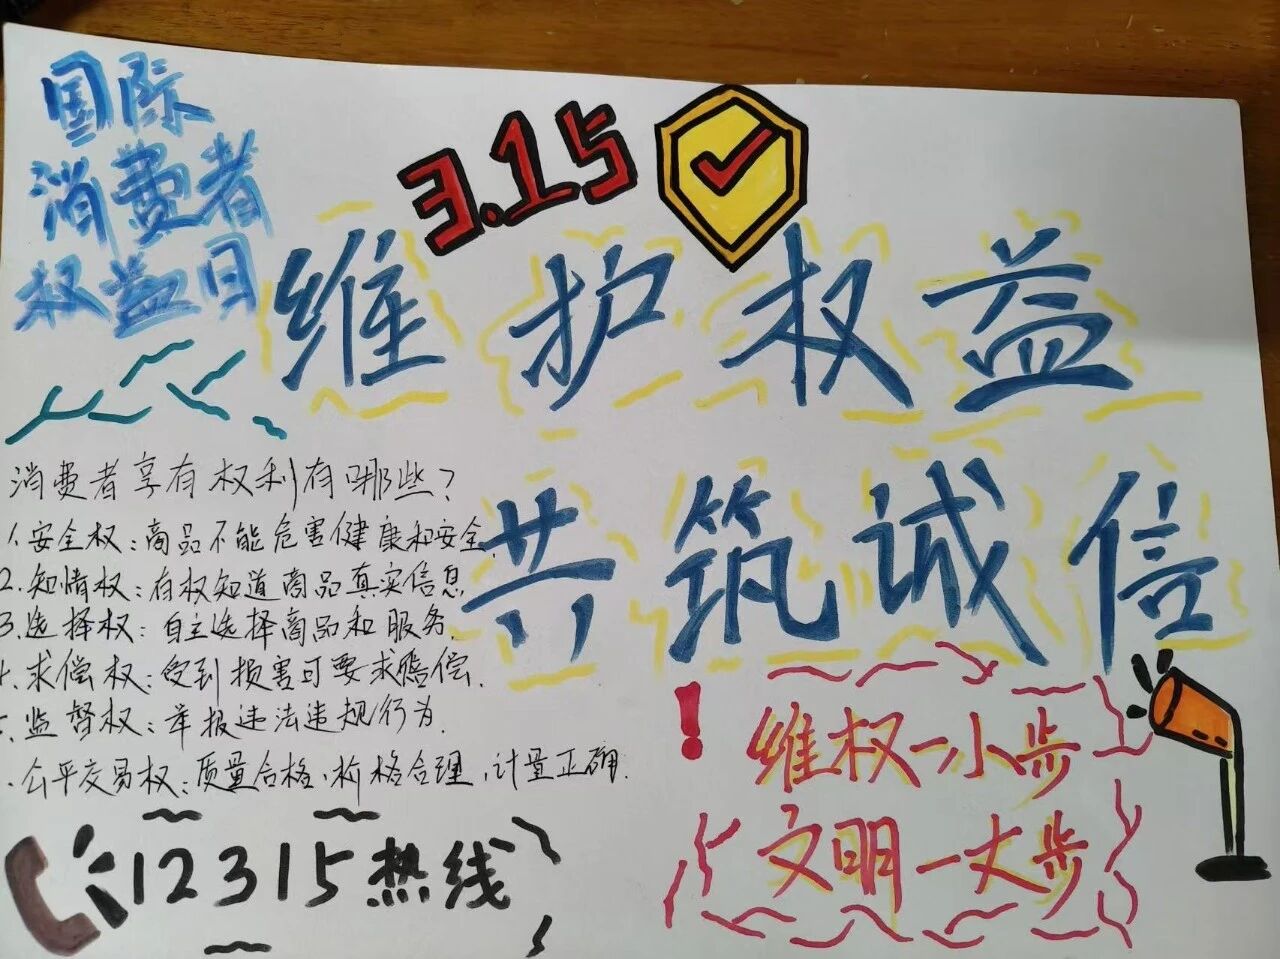 国际
消费者
权益日
3.15
维护权益
共筑诚信
消费者享有权利有哪些?
1.安全权:商品不能危害健康和安全.
2.知情权:有权知道商品真实信息
3.选择权:自主选择商品和服务.
4.求偿权:受到损害可要求赔偿.
5.监督权:举报违法违规行为.
.公平交易权:质量合格,价格合理,计量正确.
12315热线
!
维权一小步
文明一大步